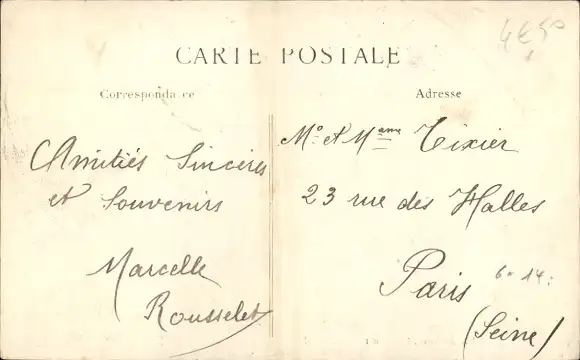 4€50
CARTE POSTALE
Correspondance
Adresse
Amitiés Sincères
et Souvenirs
Marcelle
Rousselet
Mr et Mame Tixier
23 rue des Halles
Paris
6e 14:
(Seine)